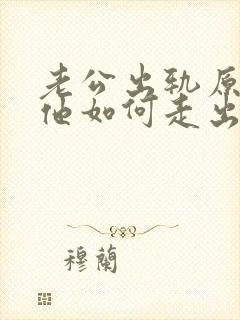 老公出轨原
他如何走出
穆蘭